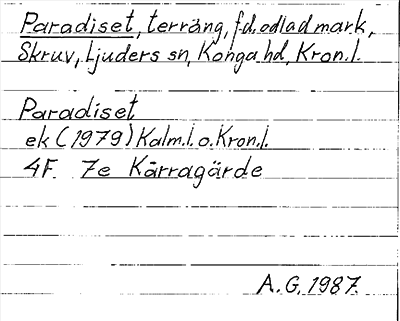 Paradiset, terräng, f.d. odlad mark,
Skruv, Ljuders sn, Konga hd, Kron. l.
Paradiset
ek (1979) Kalm. l. o. Kron. l.
4F 7e Kärragärde
A. G. 1987.